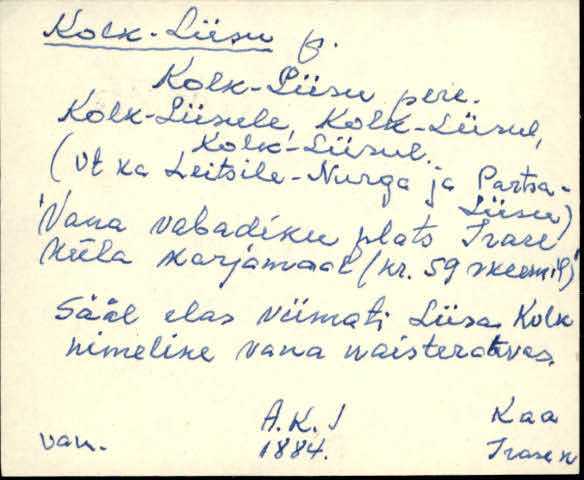 Kolk-Liisu p.
Kolk-Liisu pere.
Kolk-Liisule, Kolk-Liisul,
Kolk-Liisul.
(vt ka Leitsile-Nurga ja Partsa-
Liisu)
Vana vabadiku plats Irase
küla karjamaal (nr. 59 skeemil)
Sääl elas viimati Liisa Kolk
nimeline vana naisterahvas.
A.K.I Kaa
van. 1884. Irase k